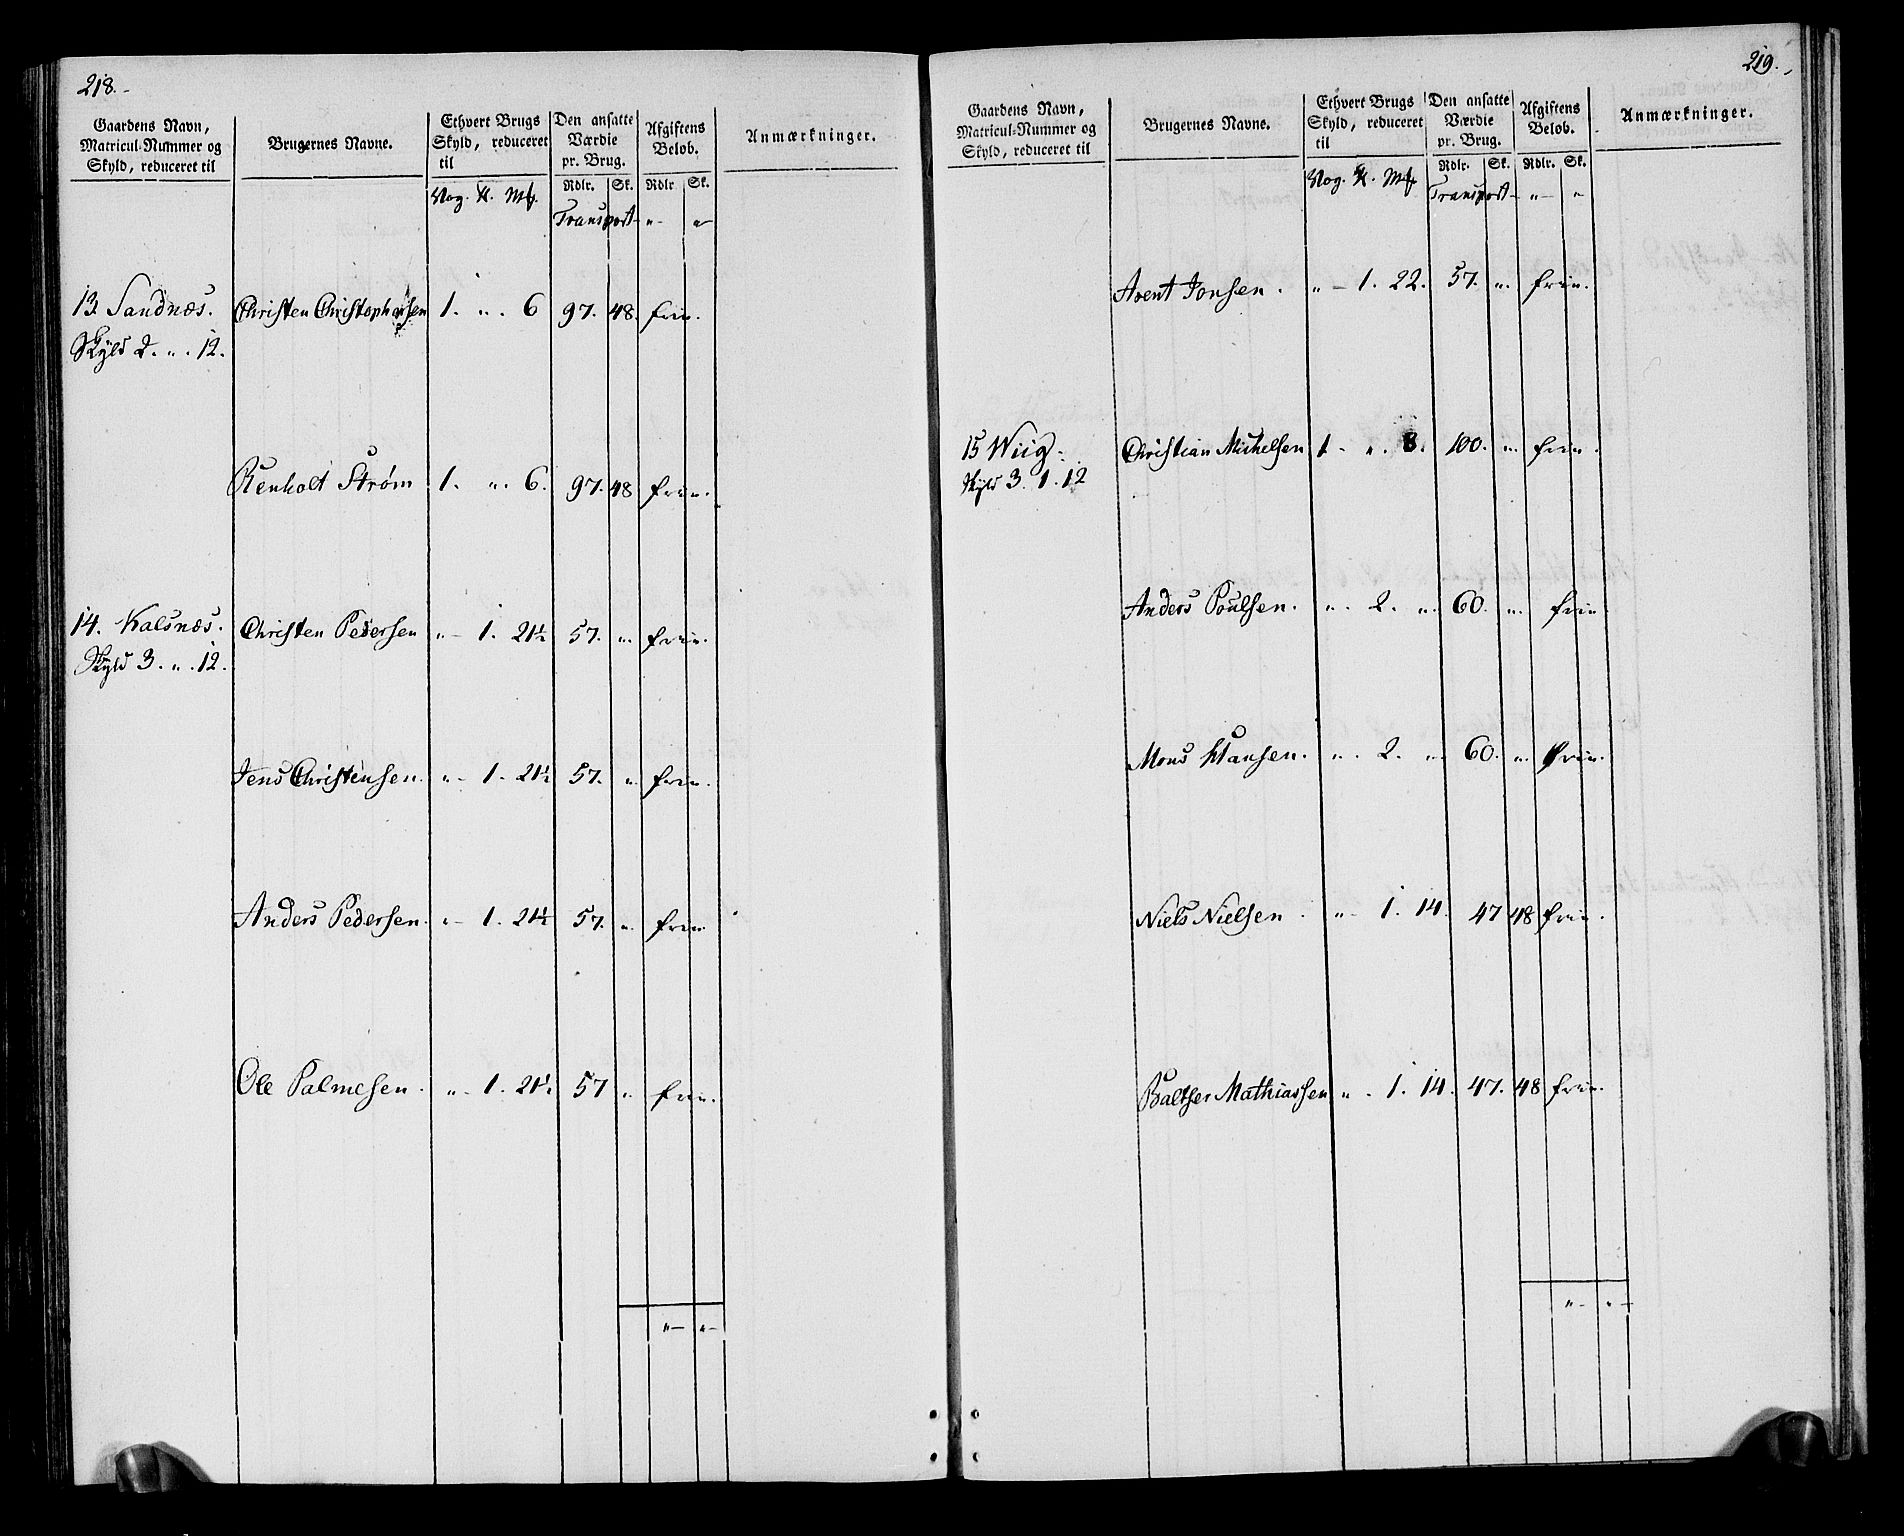 218.
Gaardens Navn, Matricul-Nummer og Skyld, reduceret til
Brugernes Navne.
Ethvert Brugs Skyld, reduceret til
Den ansatte Værdie pr. Brug.
Afgiftens Beløb.
Anmærkninger.
Vog. Mk.
Rdlr. Sk. Rdlr Sk.
Transport - „ - „
13 Sandnæs. Christen Christophersen 1. „. 6 97. 48. frie.
Skyld 2. „. 12.
Renholt Strøm 1. „. 6. 97. 48 frie.
14. Kalsnæs. Christen Pedersen „ - 1. 21½ 57. „. frie.
Skyld 3. „. 12.
Jens Christensen. „ - 1. 21½ 57. „ frie.
Anders Pedersen. „ - 1. 21½ 57. „. frie
Ole Palmesen. „ - 1. 21½ 57 „. frie.
„ - „ -
219.
Gaardens Navn, Matricul-Nummer og Skyld, reduceret til
Brugernes Navne.
Ethvert Brugs Skyld, reduceret til
Den ansatte Værdie pr. Brug.
Afgiftens Beløb.
Anmærkninger.
Vog. Mk.
Rdlr. Sk. Rdlr. Sk.
Transport - „ - „
Arent Jonsen. „ - 1. 22. 57. „. frie.
15 Wiig. Christian Michelsen 1 - „. 8. 100. „. frie.
Skyld 3. 1. 12
Anders Poulsen. „. 2. „. 60. „. frie
Mons Hansen. „. 2. „. 60. „. frie.
Niels Nielsen. „ - 1. 14. 47 48 frie.
Baltser Mathiassen „. 1. 14. 47. 48 frie.
„ - „ -